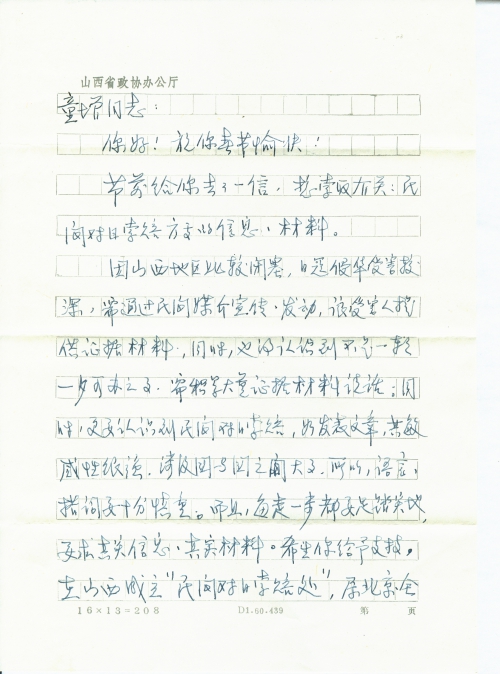 山西省政协办公厅
童增同志：
你好！祝你春节愉快！
节前给你去了一信，想索取有关：民
间对日索赔方面的信息、材料。
因山西地区比较闭塞，日冠侵华受害较
深，需通过民间媒介宣传、发动，让受害人提
供证据材料，同时，也得认识到不是一朝
一夕可办之事，需积累大量证据材料说话；同
时，更要认识到民间对日索赔，如发表文章，其敏
感性很强，涉及国与国之间大事，所以，语言、
措词要十分慎重。而且，每走一步都要足踏实地，
要求真实信息、真实材料。希望你给予支持，
在山西成立“民间对日索赔处”，属北京会
16×13=208
D1.60.439
第 页